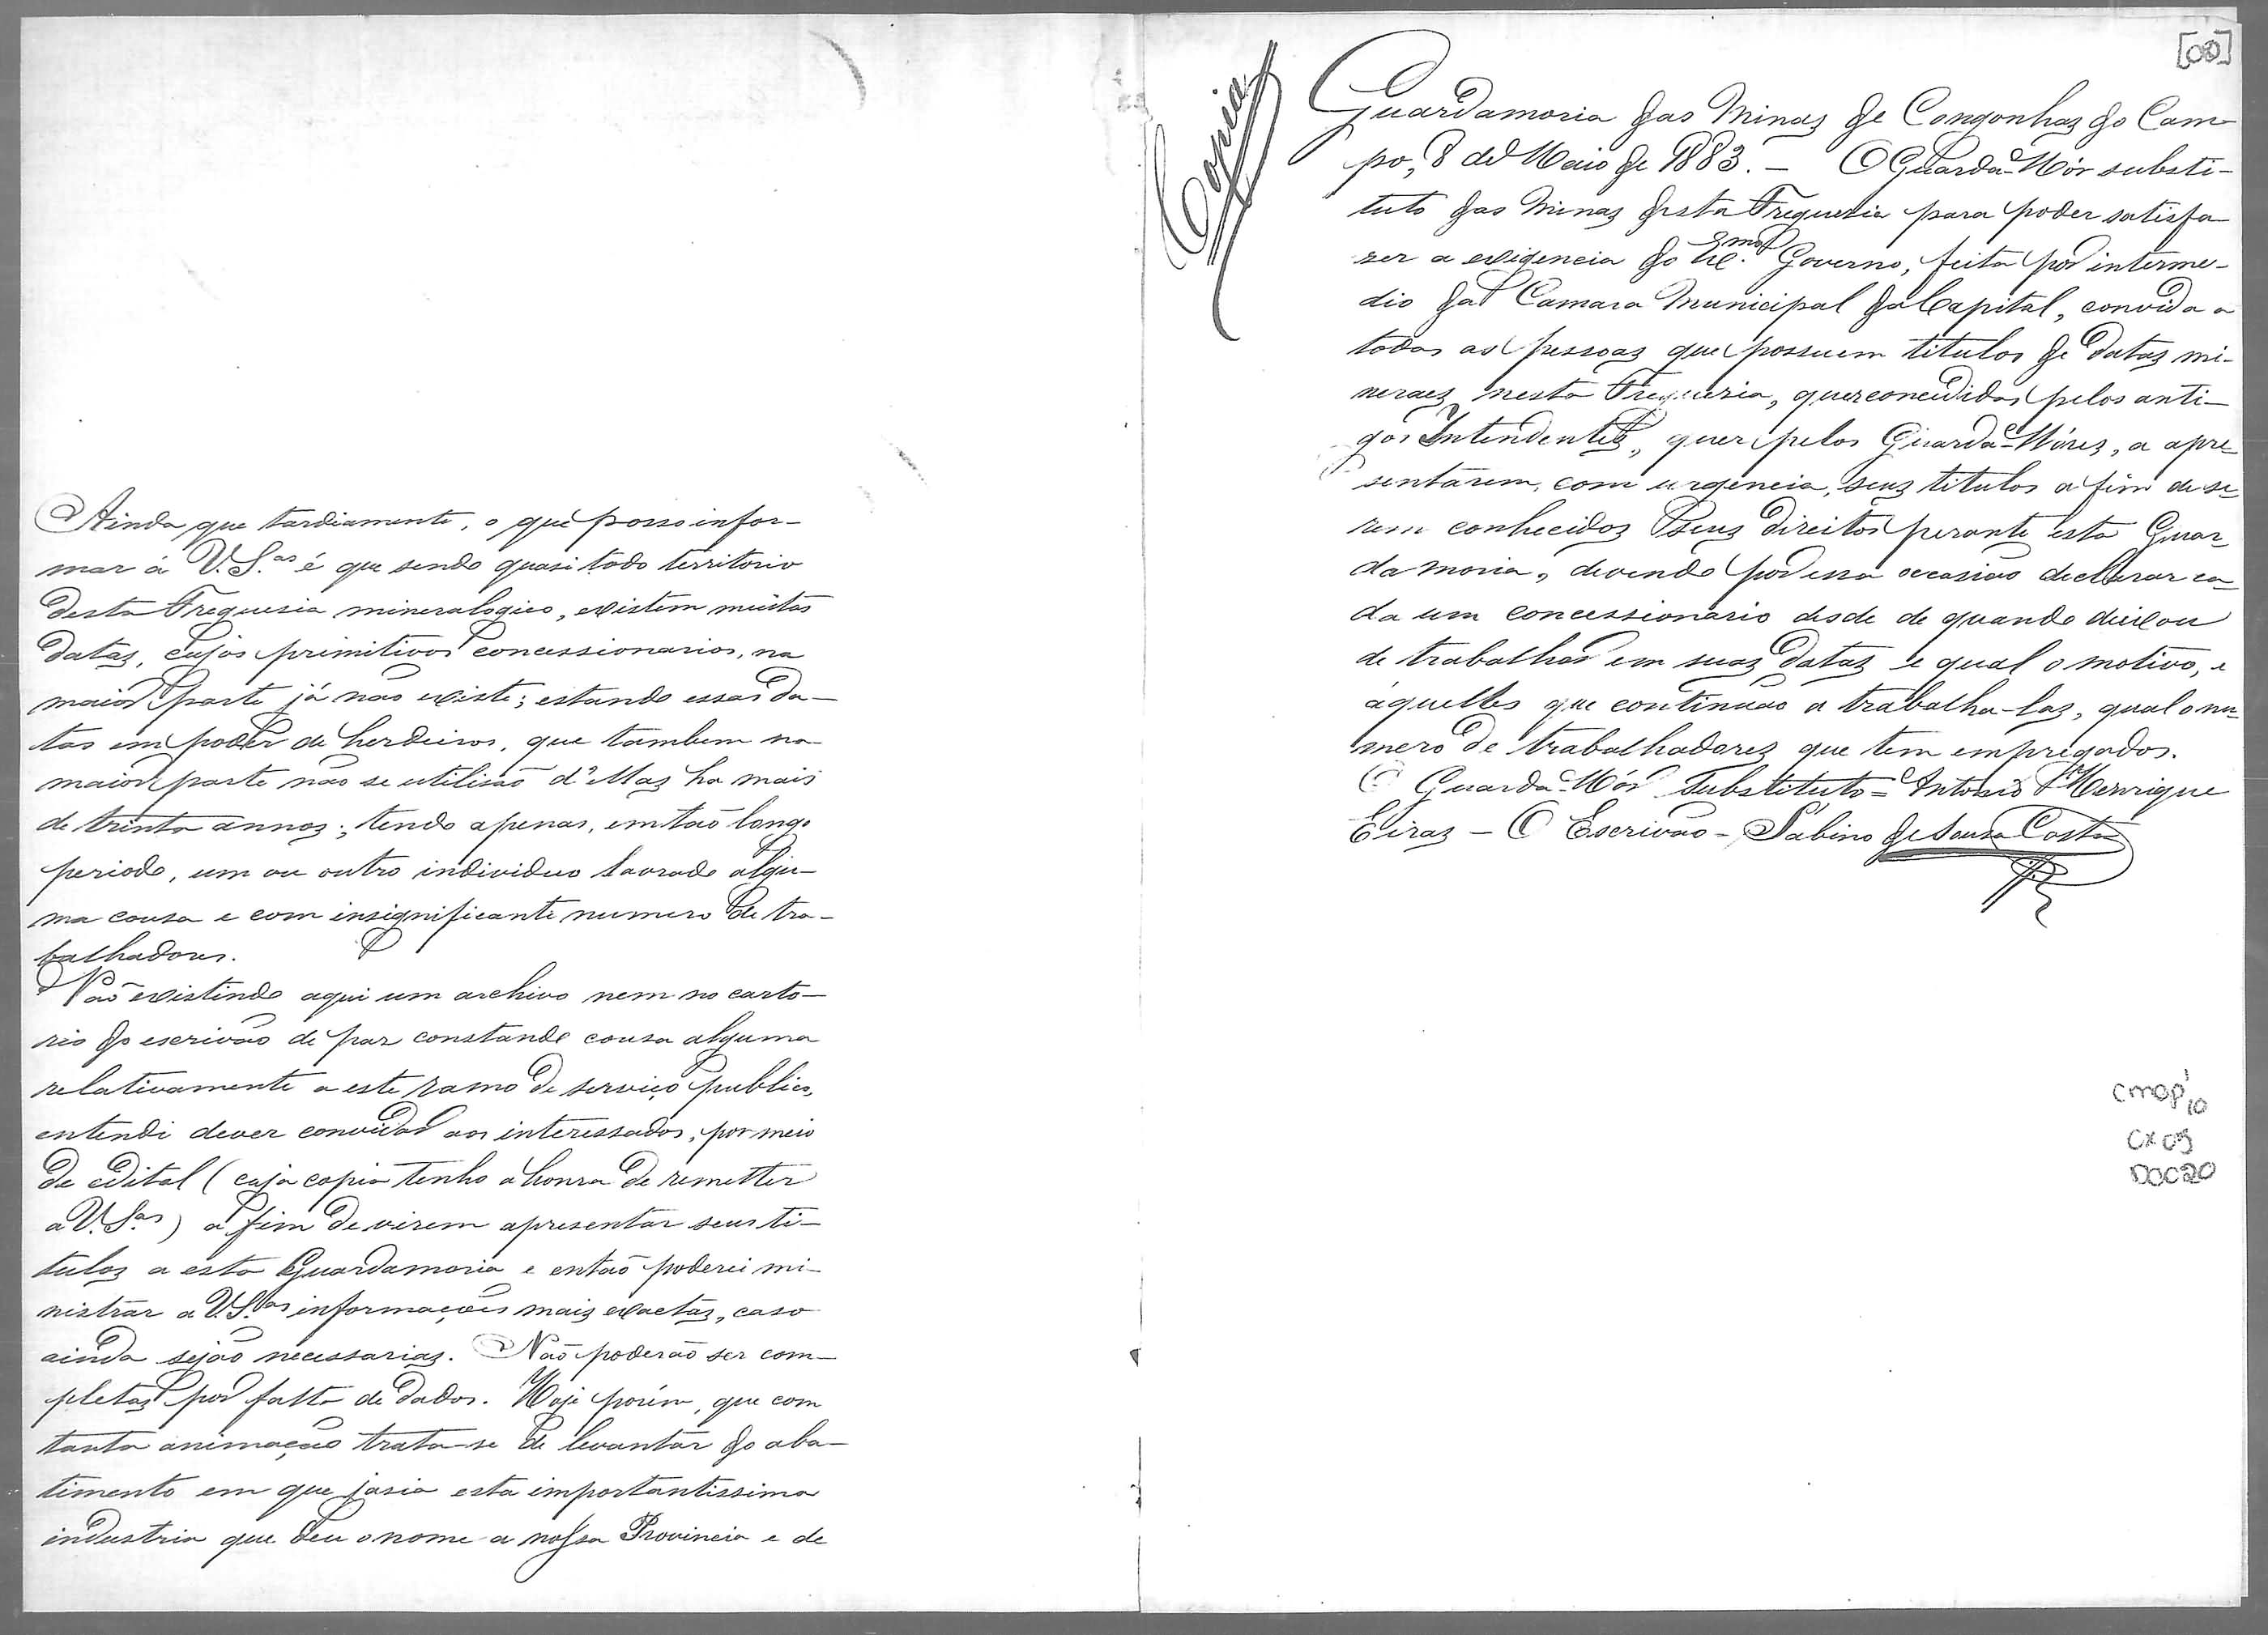 Ainda que tardiamente, o que posso infor-
mar á V. S.as é que sendo quasi todo territorio
desta Freguesia mineralogico, existem muitas
datas, cujos primitivos concessionarios, na
maior parte já não existe; estando essas da-
tas em poder de herdeiros, que tambem na
maior parte não se utilisão d'ellas ha mais
de trinta annos; tendo apenas, em tão longo
periodo, um ou outro individuo lavrado algu-
ma cousa e com insignificante numero de tra-
balhadores.
Não existindo aqui um archivo nem no carto-
rio do escrivão de paz constando cousa alguma
relativamente a este ramo de serviço publico,
entendi dever convidar aos interessados, por meio
de edital (cuja copia tenho a honra de remetter
a V. S.as) a fim de virem apresentar seus ti-
tulos a esta Guardamoria e então poderei mi-
nistrar a V. S.as informações mais exactas, caso
ainda sejão necessarias. Não poderão ser com-
pletas por falta de dados. Hoje porém, que com
tanta animação trata-se de levantar do aba-
timento em que jasia esta importantissima
industria que deu o nome a nossa Provincia e de
[00]
Copia
Guardamoria das Minas de Congonhas do Cam-
po, 8 de Maio de 1883. - O Guarda-Mór substi-
tuto das Minas desta Freguesia para poder satisfa-
zer a exigencia do Ex.mo Governo, feita por interme-
dio da Camara Municipal da Capital, convida a
todas as pessoas que possuem titulos de datas mi-
neraes nesta Freguesia, quer concedidas pelos anti-
gos Intendentes, quer pelos Guarda-Móres, a apre-
sentarem, com urgencia, seus titulos a fim de se-
rem conhecidos seus direitos perante esta Guar-
damoria, devendo por essa occasião declarar ca-
da um concessionario desde de quando deixou
de trabalhar em suas datas e qual o motivo, e
áquelles que continuão a trabalha-las, qual o nu-
mero de trabalhadores que tem empregados.
O Guarda-Mór Substituto = Antonio Henrique
Eiras - O Escrivão - Sabino de Sousa Costa
CMOP 10
CX 05
DOC 20